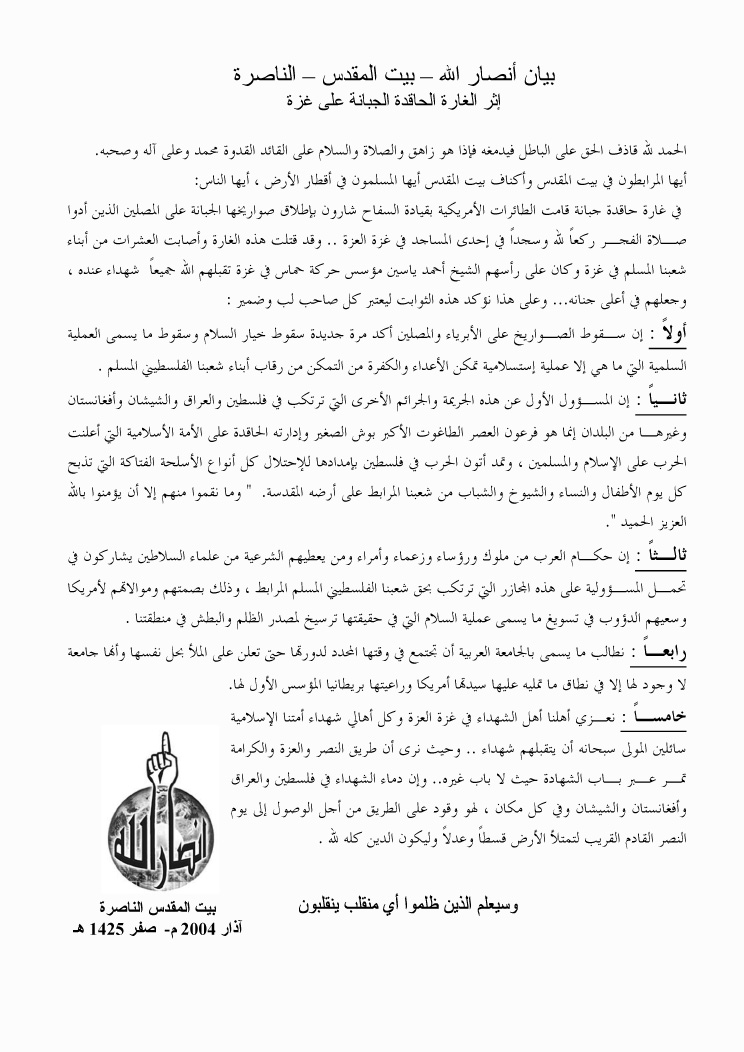 بيان أنصار الله – بيت المقدس – الناصرة
إثر الغارة الحاقدة الجبانة على غزة
الحمد لله قاذف الحق على الباطل فيدمغه فإذا هو زاهق والصلاة والسلام على القائد القدوة محمد وعلى آله وصحبه.
أيها المرابطون في بيت المقدس وأكناف بيت المقدس أيها المسلمون في أقطار الأرض ، أيها الناس:
في غارة حاقدة جبانة قامت الطائرات الأمريكية بقيادة السفاح شارون بإطلاق صواريخها الجبانة على المصلين الذين أدوا
صلاة الفجر ركعاً لله وسجداً في إحدى المساجد في غزة العزة .. وقد قتلت هذه الغارة وأصابت العشرات من أبناء
شعبنا المسلم في غزة وكان على رأسهم الشيخ أحمد ياسين مؤسس حركة حماس في غزة تقبلهم الله جميعاً شهداء عنده ،
وجعلهم في أعلى جنانه... وعلى هذا نؤكد هذه الثوابت ليعتبر كل صاحب لب وضمير :
أولاً : إن سقوط الصواريخ على الأبرياء والمصلين أكد مرة جديدة سقوط خيار السلام وسقوط ما يسمى العملية
السلمية التي ما هي إلا عملية إستسلامية تمكن الأعداء والكفرة من التمكن من رقاب أبناء شعبنا الفلسطيني المسلم .
ثانياً : إن المسؤول الأول عن هذه الجريمة والجرائم الأخرى التي ترتكب في فلسطين والعراق والشيشان وأفغانستان
وغيرها من البلدان إنما هو فرعون العصر الطاغوت الأكبر بوش الصغير وإدارته الحاقدة على الأمة الأسلامية التي أعلنت
الحرب على الإسلام والمسلمين ، وتمد أتون الحرب في فلسطين بإمدادها للإحتلال كل أنواع الأسلحة الفتاكة التي تذبح
كل يوم الأطفال والنساء والشيوخ والشباب من شعبنا المرابط على أرضه المقدسة. " وما نقموا منهم إلا أن يؤمنوا بالله
العزيز الحميد ".
ثالثاً : إن حكام العرب من ملوك ورؤساء وزعماء وأمراء ومن يعطيهم الشرعية من علماء السلاطين يشاركون في
تحمل المسؤولية على هذه المجازر التي ترتكب بحق شعبنا الفلسطيني المسلم المرابط ، وذلك بصمتهم وموالاتهم لأمريكا
وسعيهم الدؤوب في تسويغ ما يسمى عملية السلام التي في حقيقتها ترسيخ لمصدر الظلم والبطش في منطقتنا .
رابعاً : نطالب ما يسمى بالجامعة العربية أن تجتمع في وقتها المحدد لدورتها حتى تعلن على الملأ بحل نفسها وأنها جامعة
لا وجود لها إلا في نطاق ما تمليه عليها سيدتها أمريكا وراعيتها بريطانيا المؤسس الأول لها.
خامساً : نعزي أهلنا أهل الشهداء في غزة العزة وكل أهالي شهداء أمتنا الإسلامية
سائلين المولى سبحانه أن يتقبلهم شهداء .. وحيث نرى أن طريق النصر والعزة والكرامة
تمر عبر باب الشهادة حيث لا باب غيره.. وإن دماء الشهداء في فلسطين والعراق
وأفغانستان والشيشان وفي كل مكان ، لهو وقود على الطريق من أجل الوصول إلى يوم
النصر القادم القريب لتمتلأ الأرض قسطاً وعدلاً وليكون الدين كله لله .
انصار الله
وسيعلم الذين ظلموا أي منقلب ينقلبون
بيت المقدس الناصرة
آذار 2004 م- صفر 1425 هـ